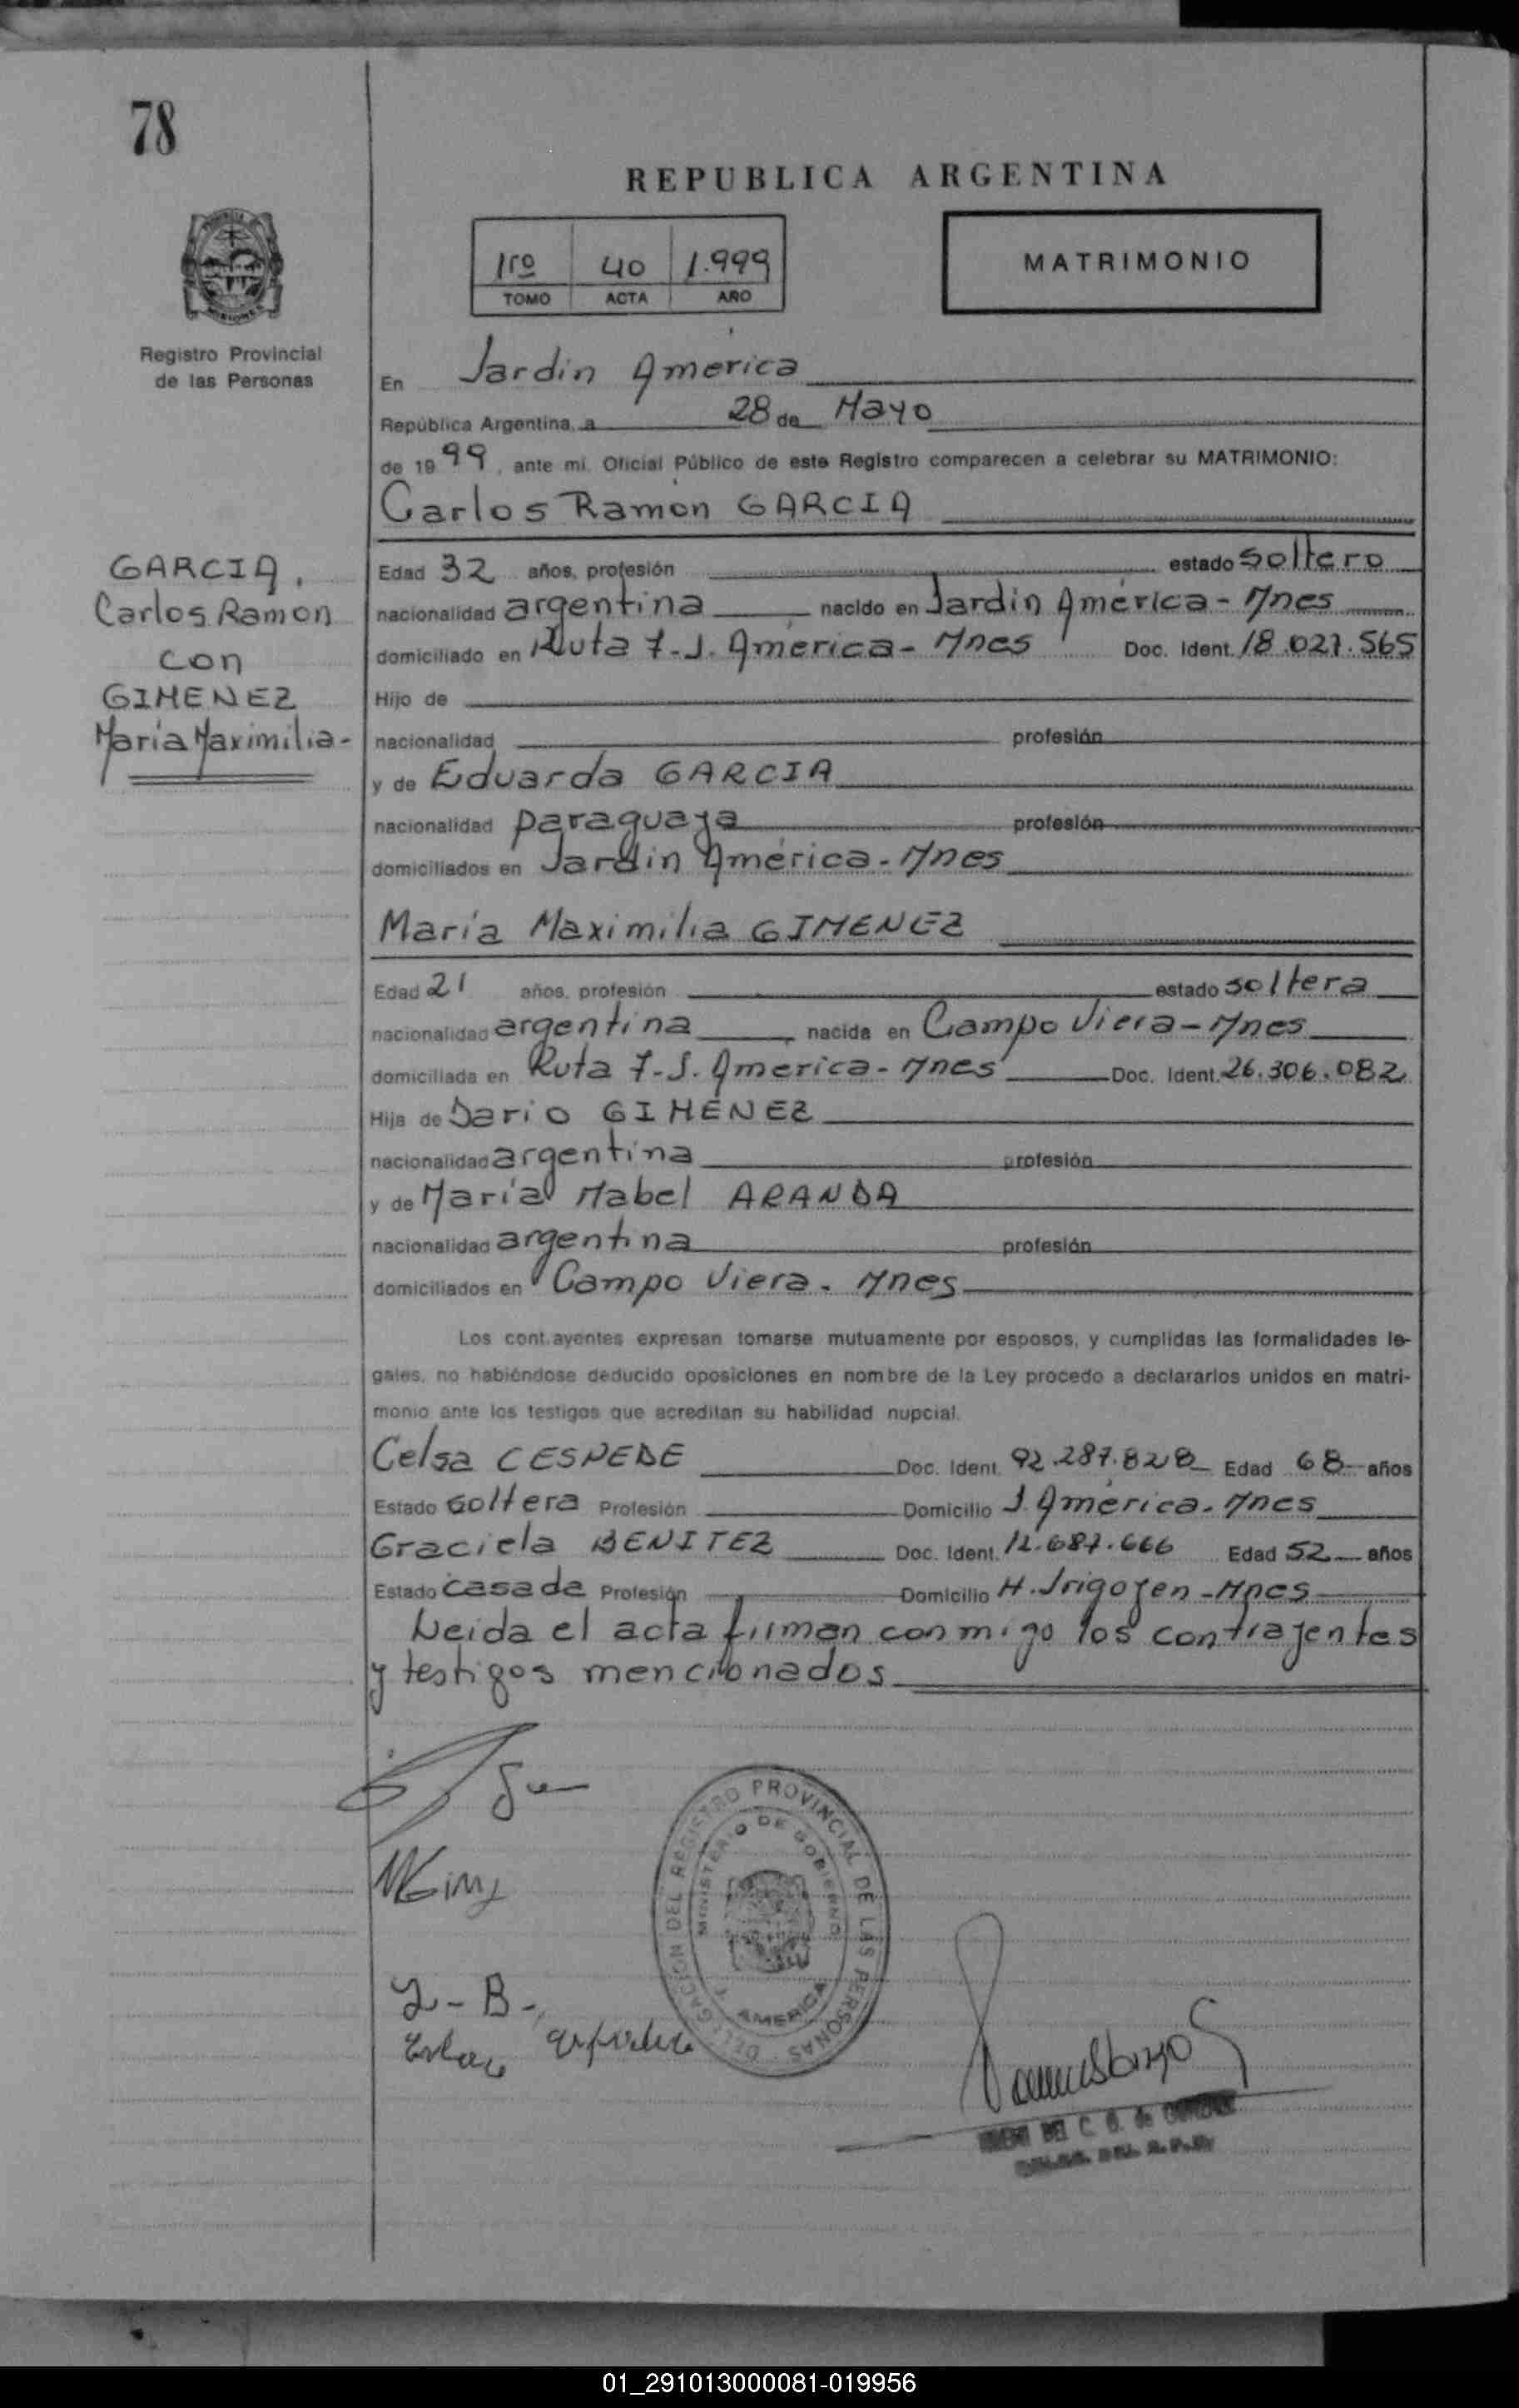 78
REPUBLICA ARGENTINA
1ro 40 1.999
TOMO ACTA AÑO
MATRIMONIO
Registro Provincial
de las Personas
En Jardin América
República Argentina, a 28 de Mayo
de 1999, ante mi, Oficial Público de este Registro comparecen a celebrar su MATRIMONIO:
Carlos Ramón GARCIA
GARCIA,
Carlos Ramon
con
GIMENEZ
María Maximilia-
Edad 32 años, profesión estado soltero
nacionalidad argentina nacido en Jardin América - Mnes
domiciliado en Ruta 7-J. América- Mnes Doc. Ident. 18.027.565
Hijo de
nacionalidad profesión
y de Eduarda GARCIA
nacionalidad paraguaya profesión
domiciliados en Jardin América - Mnes
María Maximilia GIMENEZ
Edad 21 años, profesión estado soltera
nacionalidad argentina, nacida en Campo Viera - Mnes
domiciliada en Ruta 7-J. America - Mnes Doc. Ident. 26.306.082
Hija de Dario GIMENEZ
nacionalidad argentina profesión
y de María Mabel ARANDA
nacionalidad argentina profesión
domiciliados en Campo Viera - Mnes
Los cont.ayentes expresan tomarse mutuamente por esposos, y cumplidas las formalidades le-
gales, no habiéndose deducido oposiciones en nombre de la Ley procedo a declararlos unidos en matri-
monio ante los testigos que acreditan su habilidad nupcial.
Celsa CESPEDE Doc. Ident. 92.287.828 Edad 68 años
Estado Soltera Profesión Domicilio J. América - Mnes
Graciela BENITEZ Doc. Ident. 12.687.666 Edad 52 años
Estado casada Profesión Domicilio H. Irigoyen - Mnes
Leida el acta firman conmigo los contrayentes
y testigos mencionados
DELEGACION DEL REGISTRO PROVINCIAL DE LAS PERSONAS
MINISTERIO DE GOBIERNO
AMERICA
01_291013000081-019956